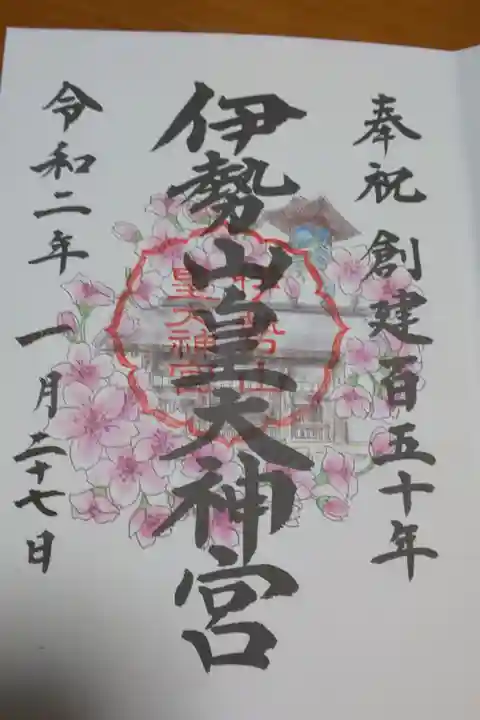 奉祝 創建百五十年
伊勢山皇大神宮
皇大神宮
令和二年 一月二十七日